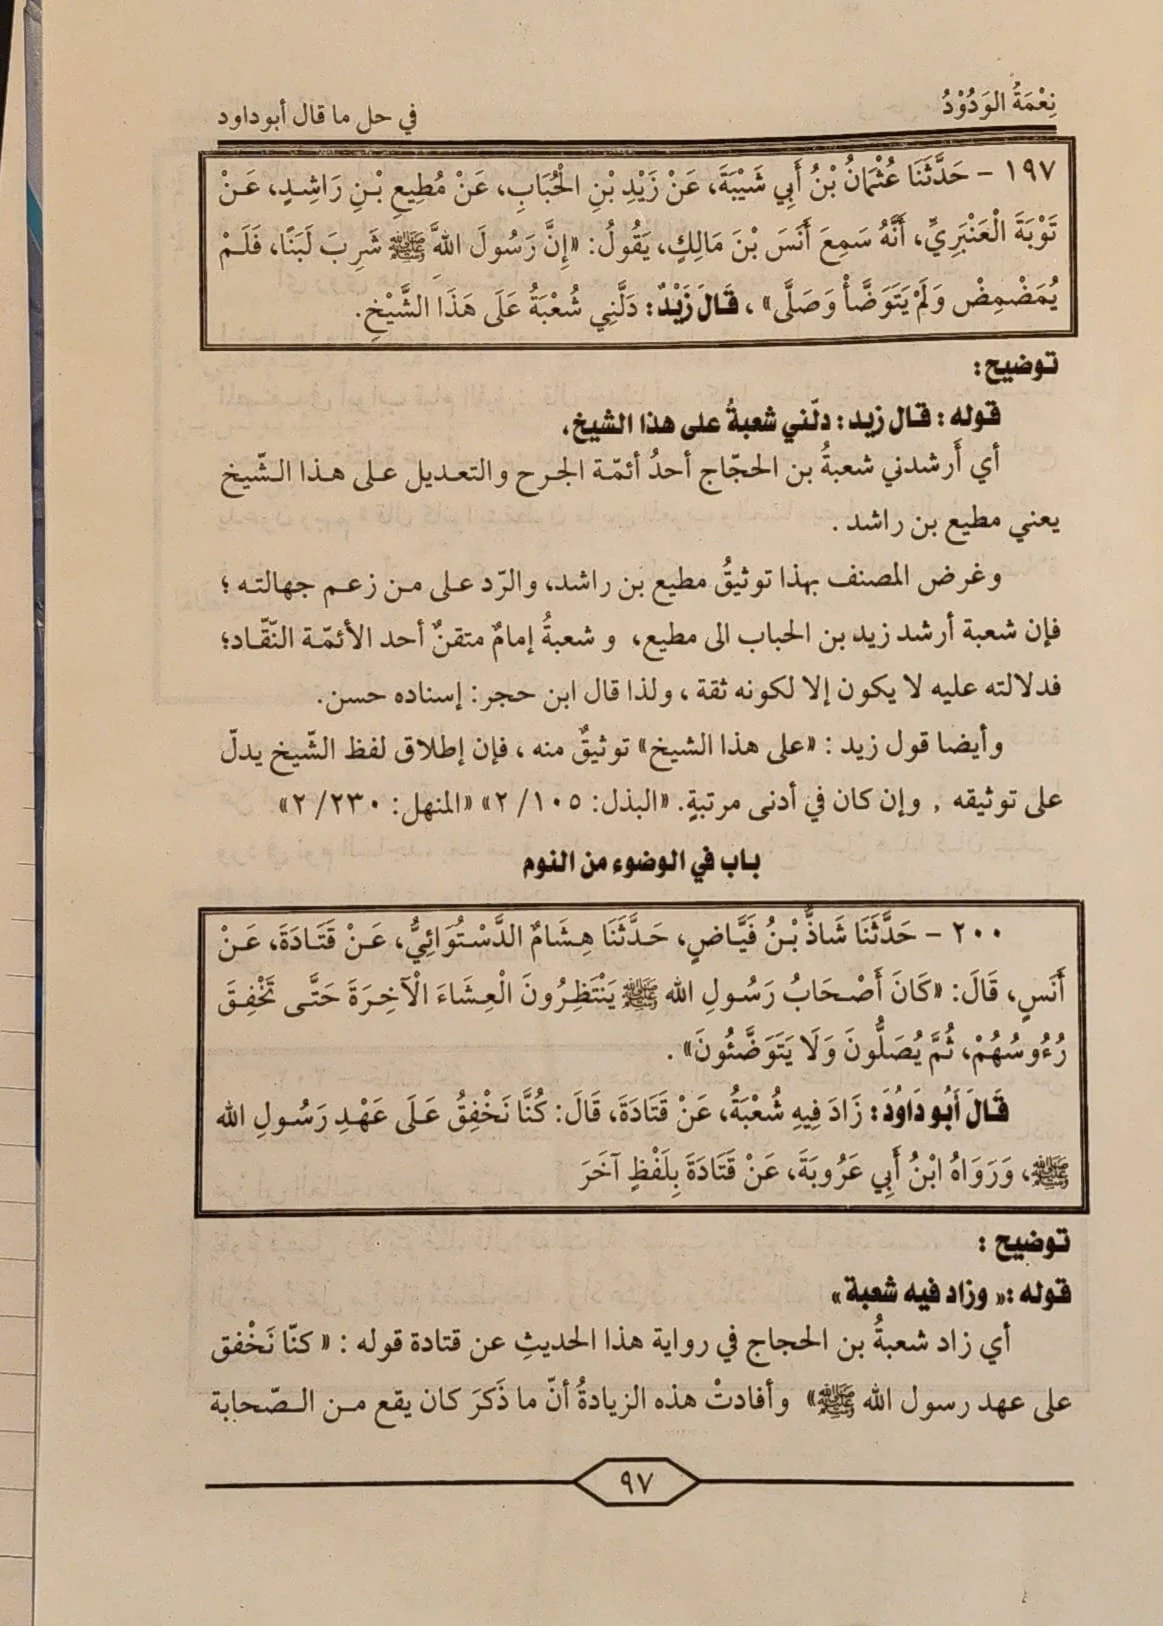 نِعْمَةُ الوَدُوْدُ
في حل ما قال أبوداود
١٩٧ - حَدَّثَنَا عُثْمَانُ بْنُ أَبِي شَيْبَةَ، عَنْ زَيْدِ بْنِ الْحُبَابِ، عَنْ مُطِيعِ بْنِ رَاشِدٍ، عَنْ
تَوْبَةَ الْعَنْبَرِيِّ، أَنَّهُ سَمِعَ أَنَسَ بْنَ مَالِكٍ، يَقُولُ: «إِنَّ رَسُولَ اللهَّ ﷺ شَرِبَ لَبَنًا، فَلَمْ
يُمَضْمِضْ وَلَمْ يَتَوَضَّأْ وَصَلَّى» ، قَالَ زَيْدٌ: دَلَّنِي شُعْبَةُ عَلَى هَذَا الشَّيْخِ.
توضيح:
قوله : قال زيد : دلّني شعبةُ على هذا الشيخ.
أي أَرشدني شعبةُ بن الحجّاج أحدُ أئمّة الجرح والتعديل على هذا الشّيخ
يعني مطيع بن راشد .
وغرض المصنف بهذا توثيقُ مطيع بن راشد، والرّد على من زعم جهالته ؛
فإن شعبة أرشد زيد بن الحباب الى مطيع، و شعبةُ إمامٌ متقنٌ أحد الأئمّة النّقّاد؛
فدلالته عليه لا يكون إلا لكونه ثقة ، ولذا قال ابن حجر: إسناده حسن.
وأيضا قول زيد : «على هذا الشيخ» توثيقٌ منه ، فإن إطلاق لفظ الشّيخ يدلّ
على توثيقه , وإن كان في أدنى مرتبةٍ. «البذل: ١٠٥ /٢» «المنهل: ٢٣٠ /٢»
باب في الوضوء من النوم
٢٠٠ - حَدَّثَنَا شَاذُّ بْنُ فَيَّاضٍ، حَدَّثَنَا هِشَامٌ الدَّسْتُوَائِيُّ، عَنْ قَتَادَةَ، عَنْ
أَنَسٍ، قَالَ: «كَانَ أَصْحَابُ رَسُولِ الله ﷺ يَنْتَظِرُونَ الْعِشَاءَ الْآخِرَةَ حَتَّى تَخْفِقَ
رُءُوسُهُمْ، ثُمَّ يُصَلُّونَ وَلَا يَتَوَضَّئُونَ» .
قَالَ أَبُو دَاوُدَ: زَادَ فِيهِ شُعْبَةُ، عَنْ قَتَادَةَ، قَالَ: كُنَّا نَخْفِقُ عَلَى عَهْدِ رَسُولِ الله
ﷺ، وَرَوَاهُ ابْنُ أَبِي عَرُوبَةَ، عَنْ قَتَادَةَ بِلَفْظٍ آخَرَ
توضيح :
قوله :« وزاد فيه شعبة »
أي زاد شعبةُ بن الحجاج في رواية هذا الحديثِ عن قتادة قوله : « كنّا نَخْفق
على عهد رسول الله ﷺ» وأفادتْ هذه الزيادةُ أنّ ما ذَكرَ كان يقع من الصّحابة
٩٧